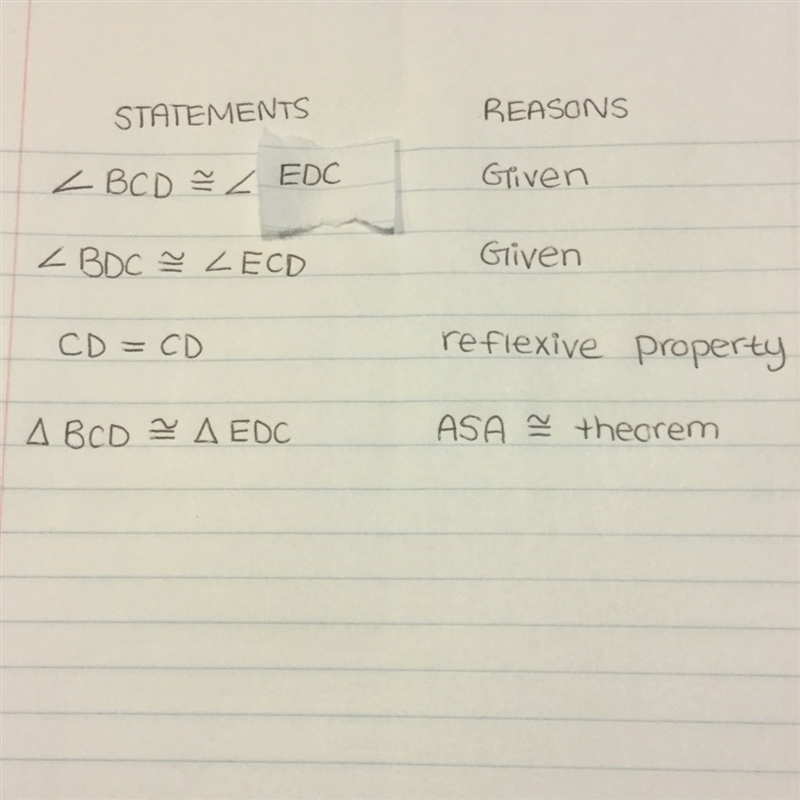 STATEMENTS REASONS
∠ BCD ≅ ∠ EDC Given
∠ BDC ≅ ∠ ECD Given
CD = CD reflexive property
Δ BCD ≅ Δ EDC ASA ≅ theorem